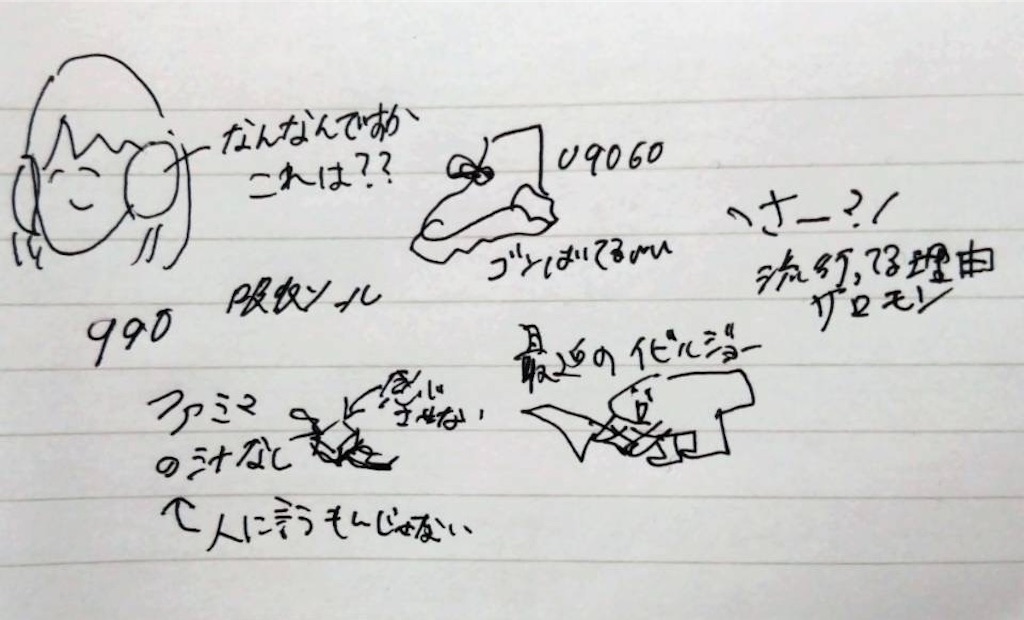 なんなんですか
これは??
U9060
さー?!
流行ってる理由
ザロモン
吸収ソール
990
最近の イビルジョー
ファミマ
の汁なし
感じ
させない
↑人に言うもんじゃない